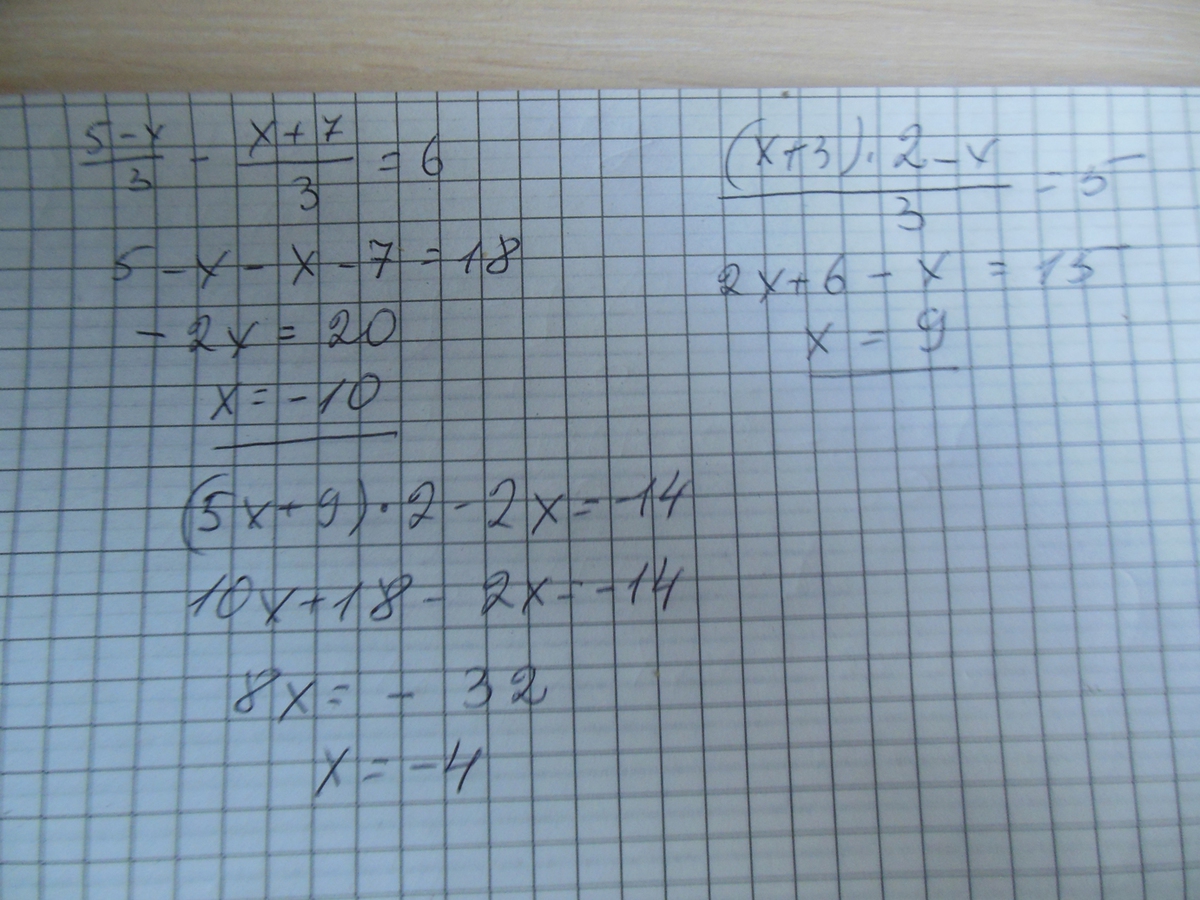 (5-x)/3 - (x+7)/3 = 6
5-x-x-7=18
-2x=20
x=-10
((x+3)·2-x)/3 = 5
2x+6-x=15
x=9
(5x+9)·2-2x=-14
10x+18-2x=-14
8x=-32
x=-4